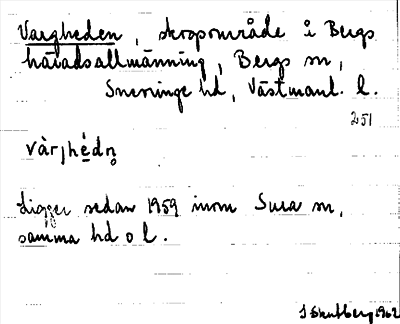 Vargheden, skogsområde i Bergs
häradsallmänning, Bergs sn,
Snevringe hd, Västmanl. l.
251
vàrjhèdn̥
Ligger sedan 1959 inom Sura sn,
samma hd o l.
1962